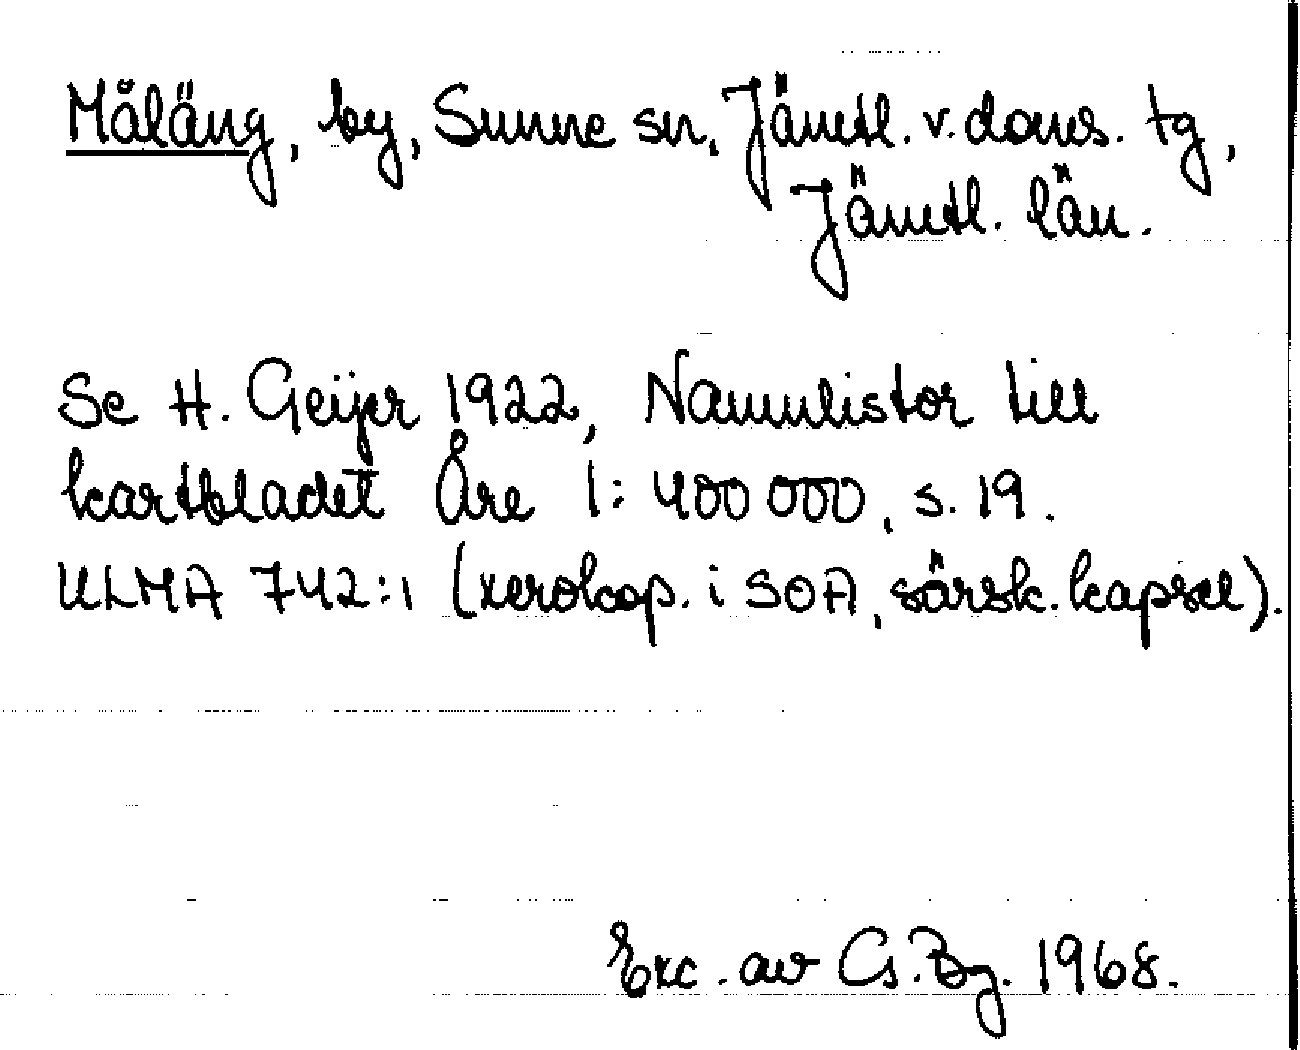 Måläng, by, Sunne sn, Jämtl. v. doms. tg,
Jämtl. län.
Se H. Geijer 1922, Namnlistor till
kartbladet Åre 1:400 000, s. 19.
ULMA 742:1 (xerokop. i SOA, särsk. kapsel).
Exc. av G. Bg. 1968.